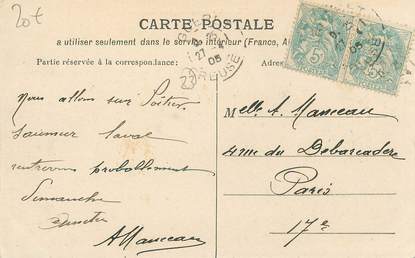 20t
CARTE POSTALE
a utiliser seulement dans le service intérieur (France, A
Partie réservée à la correspondance:
Adre
CREUSE
27
05
5
5
23
Nous allons sur Poitiers
Saumur Laval
rentrerons probablement
Dimanche
AManceau
Melle A. Manceau
4 rue du Débarcadère
Paris
17e